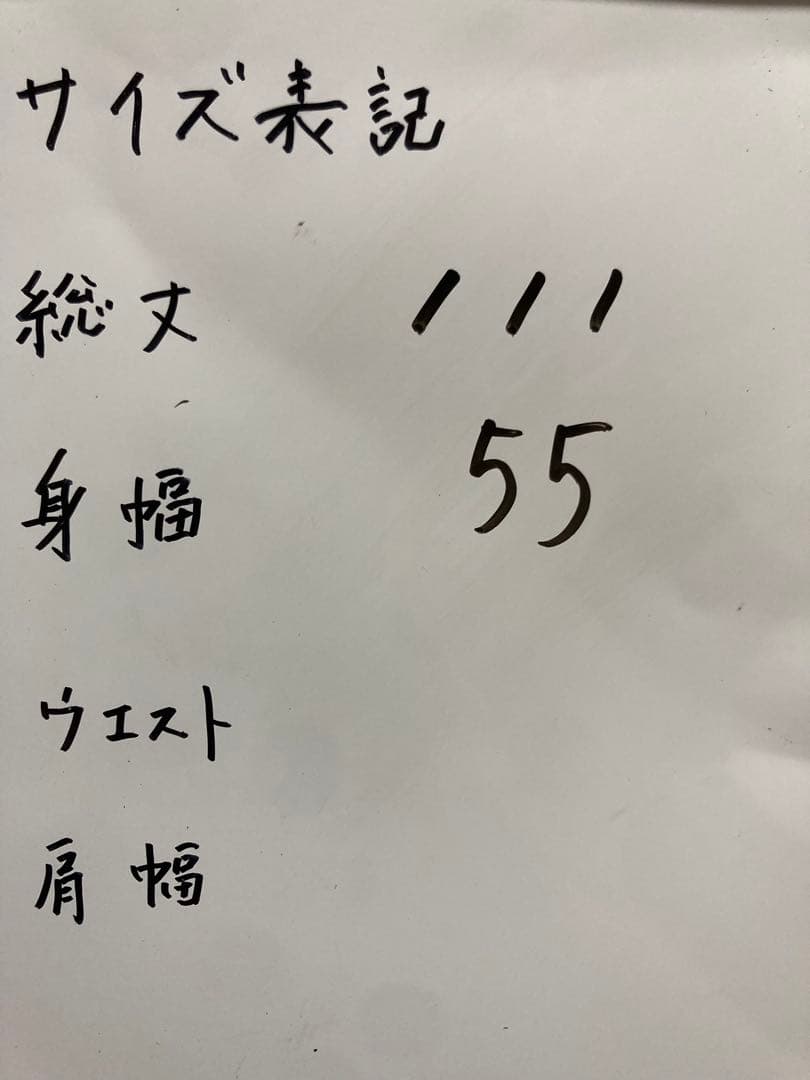 サイズ表記
総丈 111
身幅 55
ウエスト
肩幅